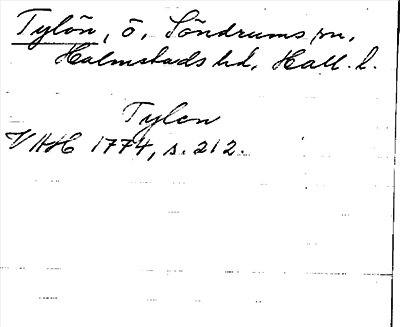 Tylön, ö, Söndrums sn,
Halmstads hd, Hall. l.
Tylen
VAH 1774, s. 212.